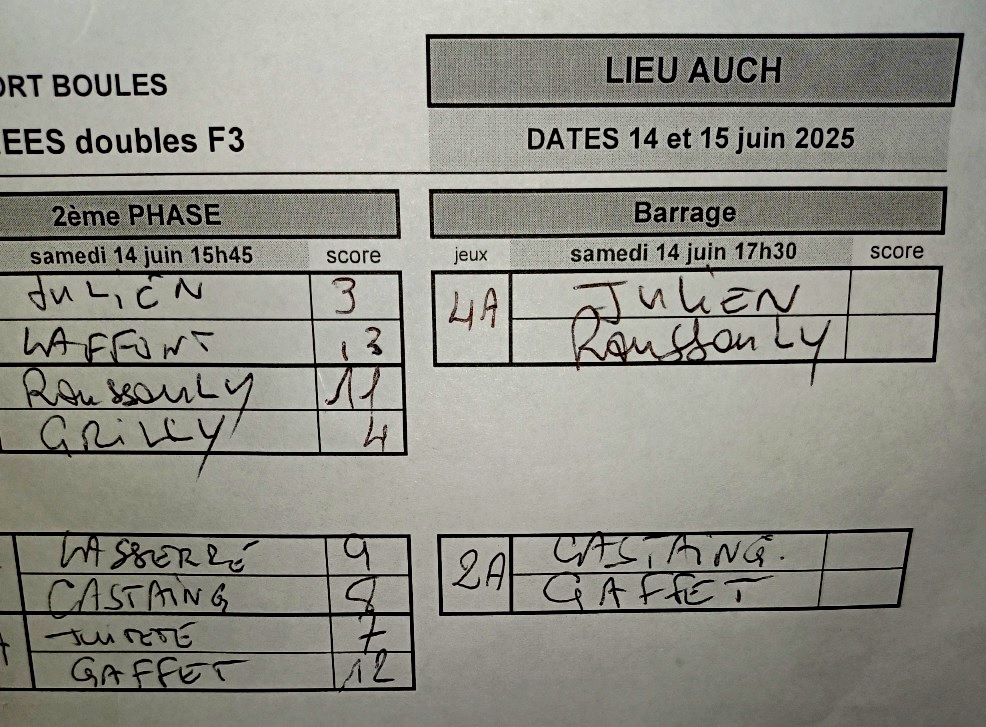 ORT BOULES
LIEU AUCH
EES doubles F3
DATES 14 et 15 juin 2025
2ème PHASE
samedi 14 juin 15h45 score
JULIEN 3
LAFFONT 13
ROUSSOULY 11
GRILLY 4
LASSERRE 9
CASTAING 8
7
GAFFET 12
Barrage
jeux samedi 14 juin 17h30 score
4A JULIEN
ROUSSOULY
2A CASTAING.
GAFFET